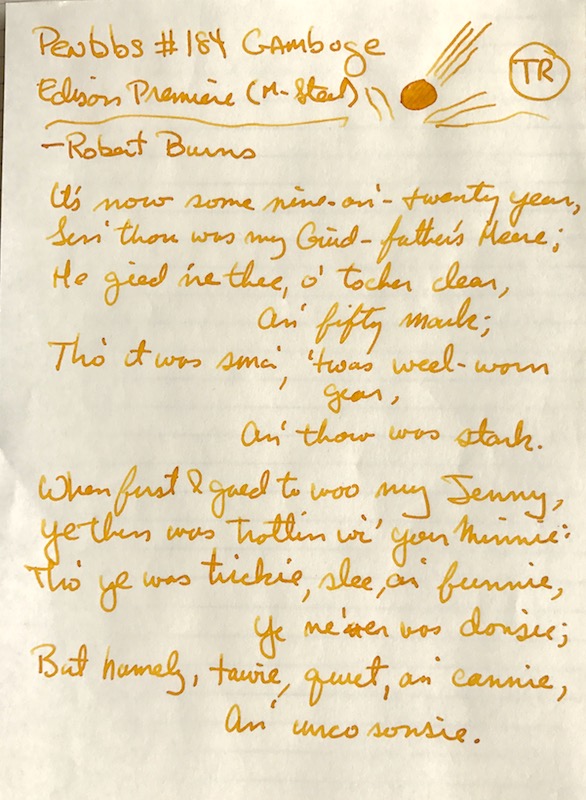 Penbbs #184 Gamboge
TR
Edison Premiere (M-Steel)
- Robert Burns
It's now some nine-an'-twenty year,
Sin' thou was my Guid-father's Meere;
He gied me thee, o' tocher clear,
An' fifty mark;
Tho' it was sma', 'twas weel-worn
gear,
An' thou was stark.
When first I gaed to woo my Jenny,
Ye then was trottin wi' your Minnie:
Tho' ye was trickie, slee, an' funnie,
Ye ne'er was donsie;
But hamely, tawie, quiet, an' cannie,
An' unco sonsie.